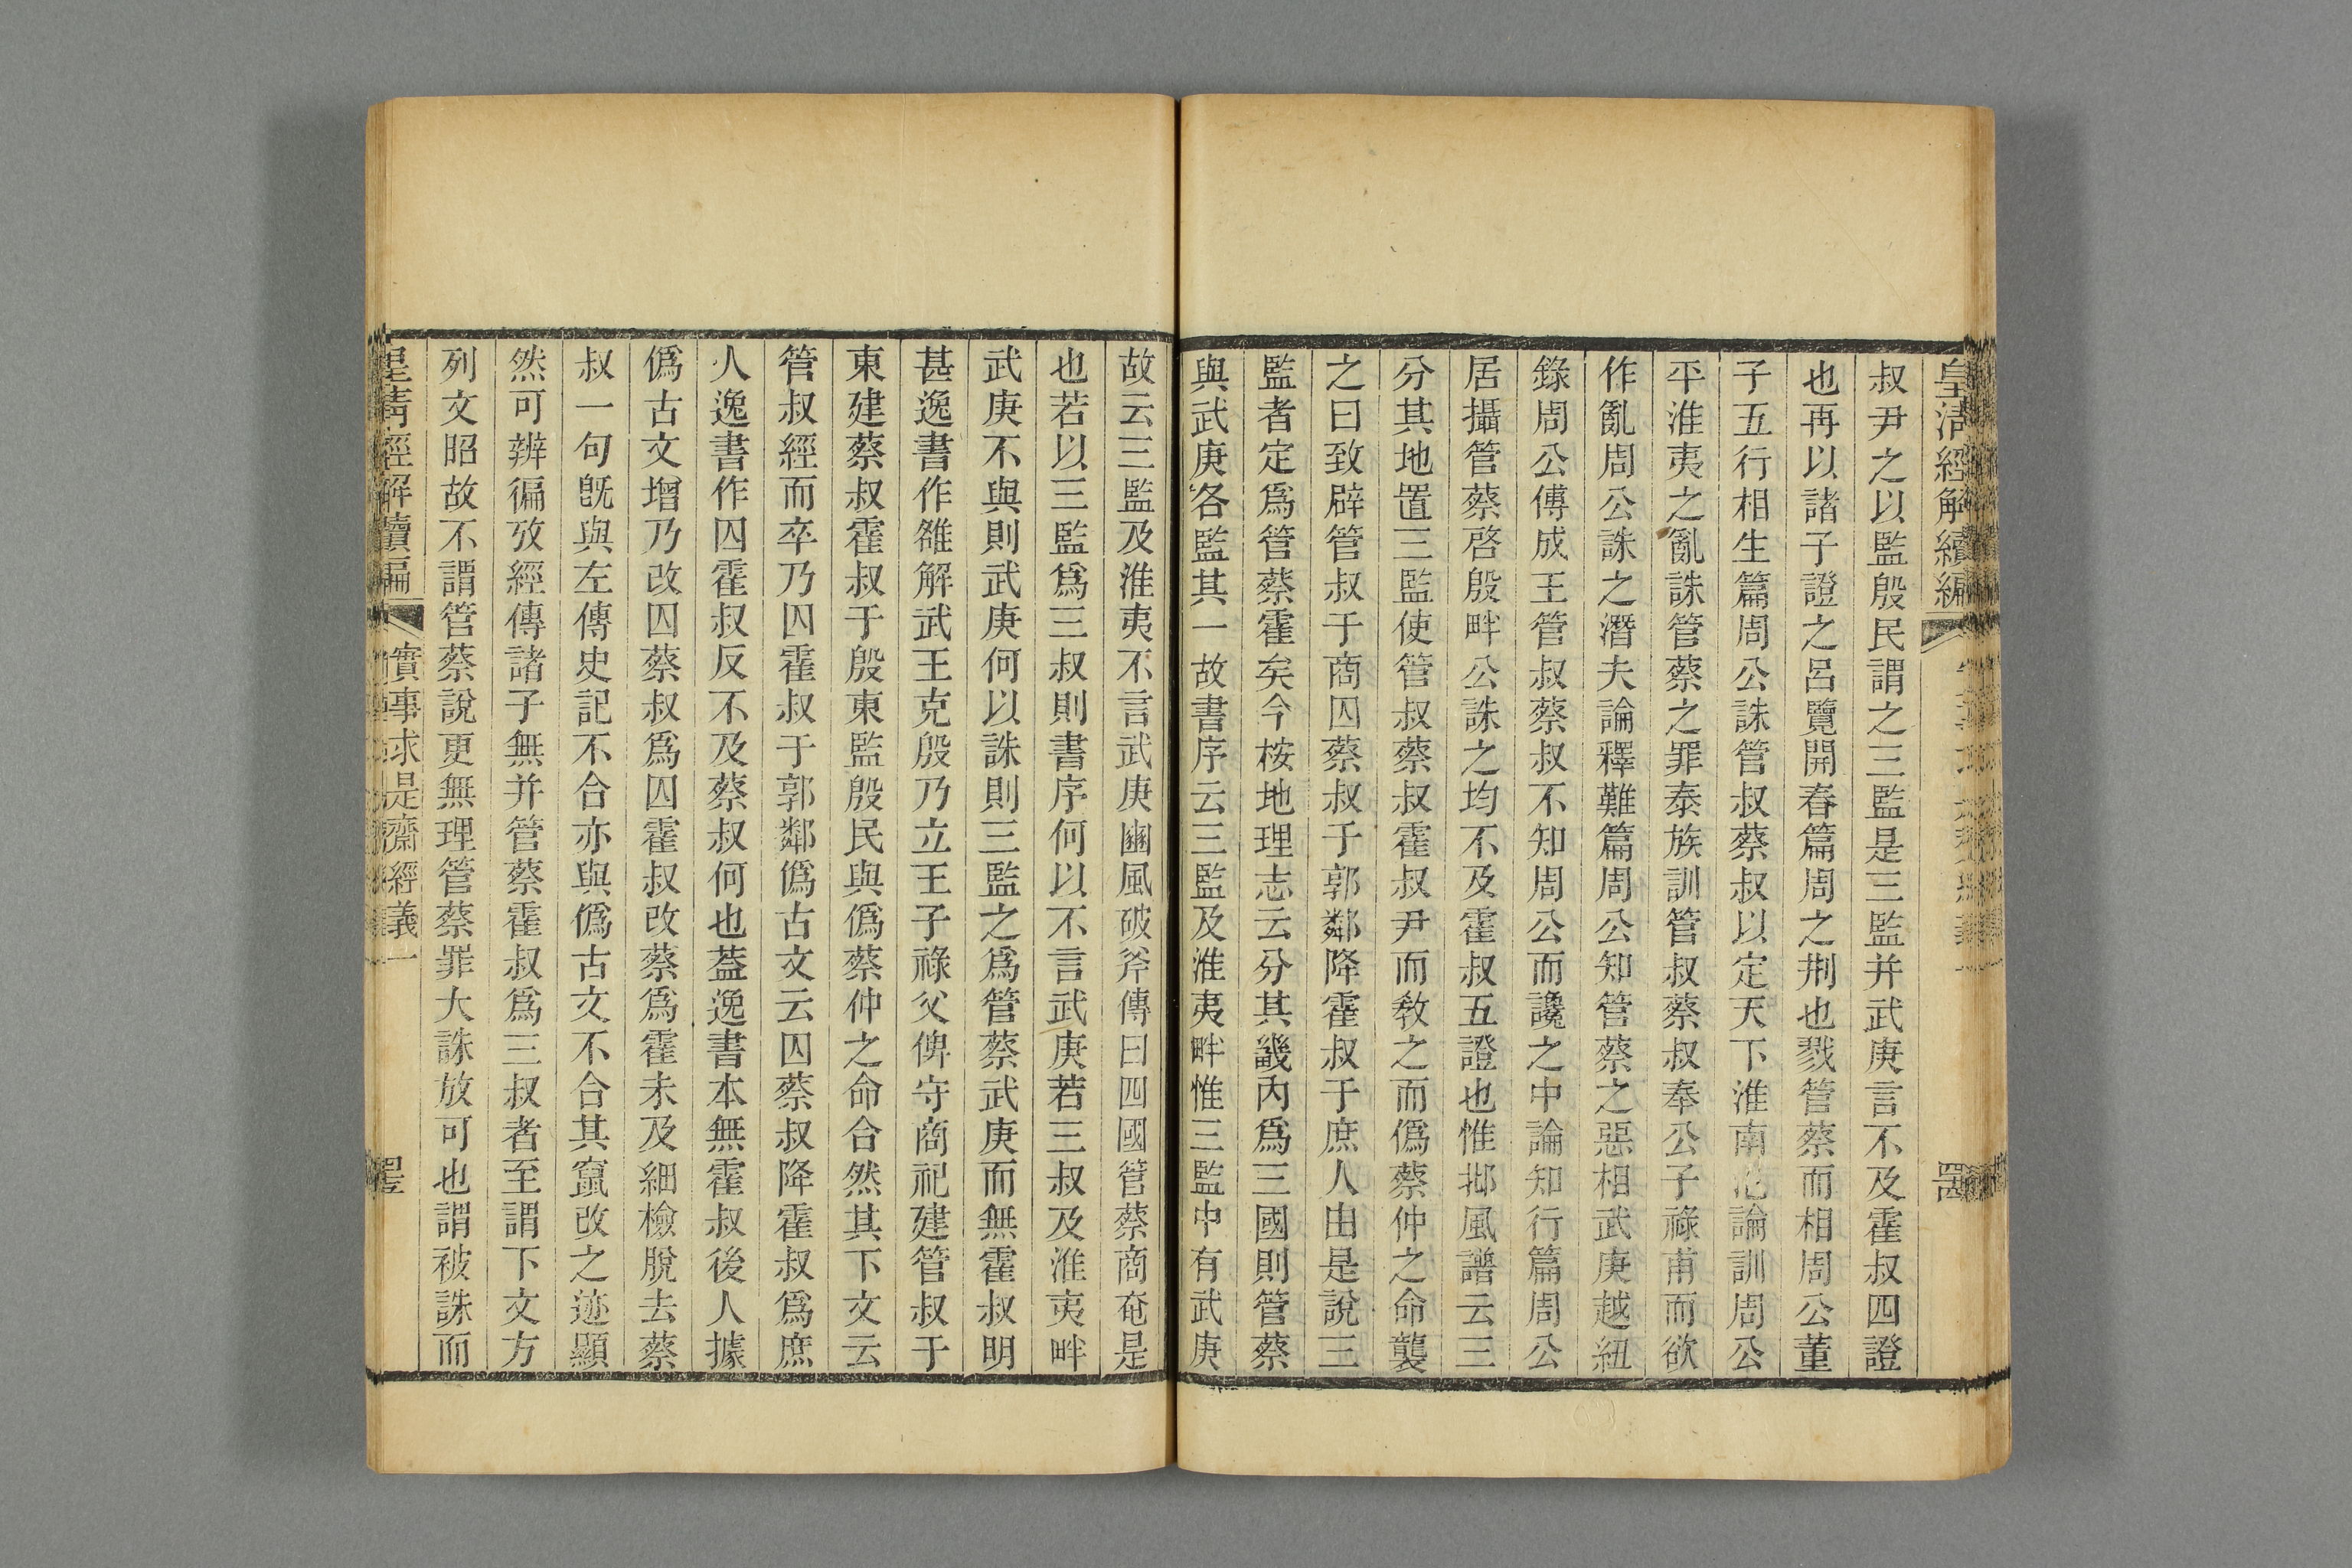 皇清經解續編
叔尹之以監殷民謂之三監是三監并武庚言不及霍叔四證
也再以諸子證之呂覽開春篇周之刑也戮管蔡而相周公董
子五行相生篇周公誅管叔蔡叔以定天下淮南氾論訓周公
平淮夷之亂誅管蔡之罪泰族訓管叔蔡叔奉公子祿甫而欲
作亂周公誅之潛夫論釋難篇周公知管蔡之惡相武庚越紐
錄周公傅成王管叔蔡叔不知周公而讒之中論知行篇周公
居攝管蔡啓殷畔公誅之均不及霍叔五證也惟邶風譜云三
分其地置三監使管叔蔡叔霍叔尹而敎之而僞蔡仲之命襲
之曰致辟管叔于商囚蔡叔于郭鄰降霍叔于庶人由是說三
監者定爲管蔡霍矣今桉地理志云分其畿內爲三國則管蔡
與武庚各監其一故書序云三監及淮夷畔惟三監中有武庚
故云三監及淮夷不言武庚豳風破斧傳曰四國管蔡商奄是
也若以三監爲三叔則書序何以不言武庚若三叔及淮夷畔
武庚不與則武庚何以誅則三監之爲管蔡武庚而無霍叔明
甚逸書作雒解武王克殷乃立王子祿父俾守商祀建管叔于
東建蔡叔霍叔于殷東監殷民與僞蔡仲之命合然其下文云
管叔經而卒乃囚霍叔于郭鄰僞古文云囚蔡叔降霍叔爲庶
人逸書作囚霍叔反不及蔡叔何也葢逸書本無霍叔後人據
僞古文增乃改囚蔡叔爲囚霍叔改蔡爲霍未及細檢脫去蔡
叔一句旣與左傳史記不合亦與僞古文不合其竄改之迹顯
然可辨徧攷經傳諸子無并管蔡霍叔爲三叔者至謂下文方
列文昭故不謂管蔡說更無理管蔡罪大誅放可也謂被誅而
皇清經解續編 實事求是齋經義一